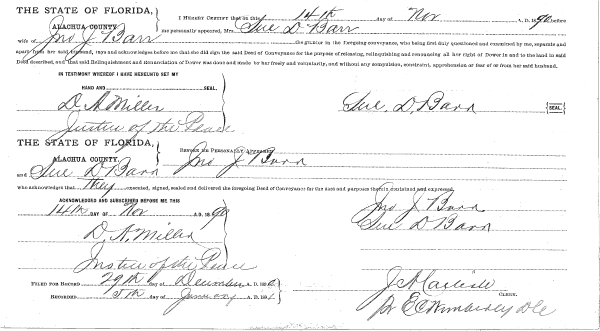 THE STATE OF FLORIDA,
ALACHUA COUNTY.
I HEREBY CERTIFY that on this 14th day of Nov A. D. 1890 before
me personally appeared, Mrs. Sue D Barr
wife of Jno J Barr the grantor in the foregoing conveyance, who being first duly questioned and examined by me, separate and
apart from her said husband, says and acknowledges before me that she did sign the said Deed of Conveyance for the purpose of releasing, relinquishing and renouncing all her right of Dower in and to the land in said
Deed described, and that said Relinquishment and Renunciation of Dower was done and made by her freely and voluntarily, and without any compulsion, constraint, apprehension or fear of or from her said husband.
IN TESTIMONY WHEREOF I HAVE HEREUNTO SET MY
HAND AND SEAL.
D. A. Miller
Justice of the Peace
Sue. D Barr {SEAL.}
THE STATE OF FLORIDA,
ALACHUA COUNTY.
BEFORE ME PERSONALLY APPEARED Jno J Barr
and Sue D Barr
who acknowledges that they executed, signed, sealed and delivered the foregoing Deed of Conveyance for the uses and purposes therein contained and expressed.
ACKNOWLEDGED AND SUBSCRIBED BEFORE ME THIS
14th DAY OF Nov A. D. 1890
D. A. Miller
Justice of the Peace
Jno J Barr
Sue D Barr
FILED FOR RECORD 29th day of December A. D. 1890
RECORDED 5th day of January 1891
CLERK.
Pr E C Wimberley D C